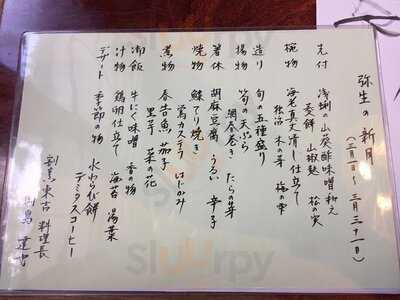 弥生の新月
(三月一日〜三月三十一日)
先付 浅蜊の山葵酢味噌和え
麦餅 山椒麩 松の実
椀物 海老真丈清し仕立て
木の芽 梅の雫
造り 旬の五種盛り
揚物 筍の天ぷら
網春巻き たらの芽
箸休 胡麻豆腐 うるい 辛子
焼物 鰆てり焼き
鶯カステラ はじかみ
煮物 春告魚 茄子
里芋 菜の花
御飯 牛にく味噌 香の物
汁物 鶏卵仕立て 海苔 湯葉
デザート 季節の物 水わらび餅
デミタスコーヒー
割烹 東吉 料理長
Sluurpy